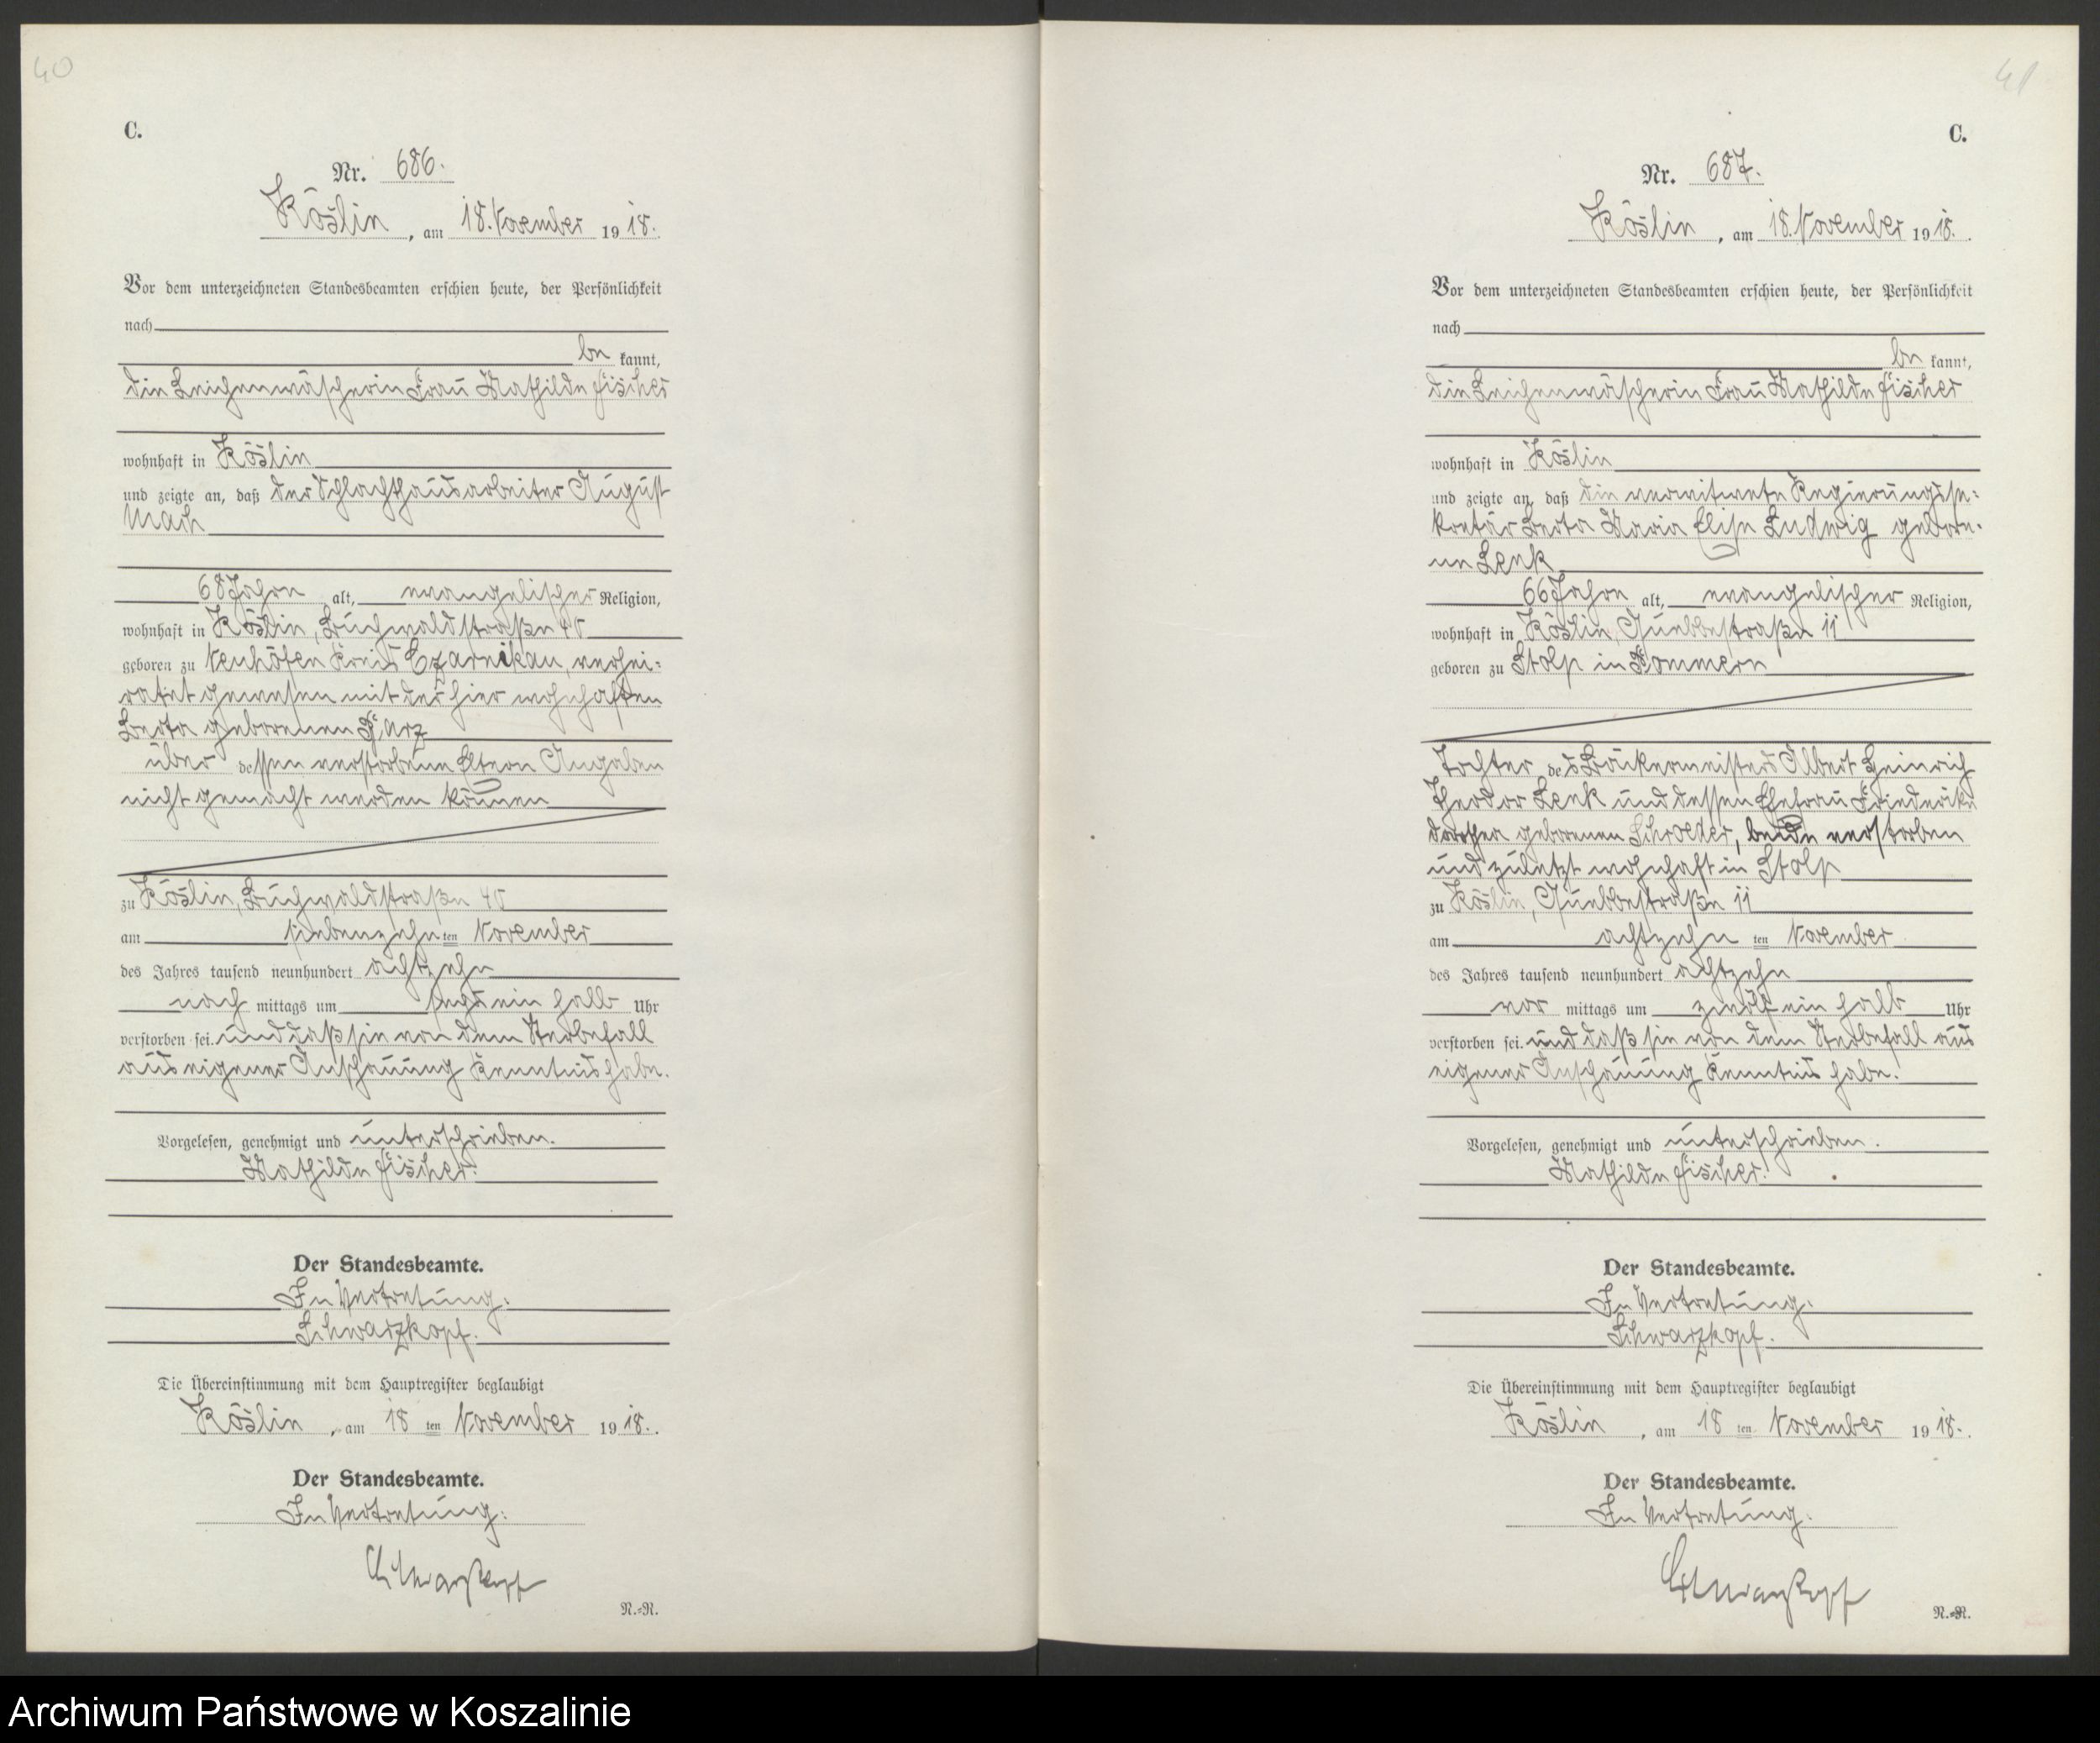 40
C.
Nr. 686.
Köslin, am 18. November 1918.
Vor dem unterzeichneten Standesbeamten erschien heute, der Persönlichkeit
nach
be kannt,
die Leichenwäscherin Frau Mathilde Fischer
wohnhaft in Köslin
und zeigte an, daß der Schlachthausarbeiter August
Mach
68 Jahre alt, evangelischer Religion,
wohnhaft in Köslin, Buchwaldstraße 40
geboren zu Neuhöfen Kreis Czarnikau, verhei-
ratet gewesen mit der hier wohnhaften
Berta geborenen
über dessen verstorbene Eltern Angaben
nicht gemacht werden können
zu Köslin, Buchwaldstraße 40
am siebenzehn ten November
des Jahres tausend neunhundert achtzehn
nach mittags um sechs ein halb Uhr
verstorben sei. und daß sie von dem Sterbefall
aus eigener Anschauung Kenntnis habe.
Vorgelesen, genehmigt und unterschrieben.
Mathilde Fischer.
Der Standesbeamte.
In Vertretung:
Schwarzkopf.
Die Übereinstimmung mit dem Hauptregister beglaubigt
Köslin, am 18 ten November 1918.
Der Standesbeamte.
In Vertretung:
Schwarzkopf
N.=N.
41
C.
Nr. 687.
Köslin, am 18. November 1918.
Vor dem unterzeichneten Standesbeamten erschien heute, der Persönlichkeit
nach
be kannt,
die Leichenwäscherin Frau Mathilde Fischer
wohnhaft in Köslin
und zeigte an, daß die verwitwete Regierungsse-
kretär Berta Maria Elise Ludwig gebore-
ne Lenk
66 Jahre alt, evangelischer Religion,
wohnhaft in Köslin, Quebbestraße 11
geboren zu Stolp in Pommern
Tochter des Bäckermeisters Albert Heinrich
Theodor Lenk und dessen Ehefrau Friederike
Dorothea geborenen Schroeder, beide verstorben
und zuletzt wohnhaft in Stolp
zu Köslin, Quebbestraße 11
am achtzehn ten November
des Jahres tausend neunhundert achtzehn
vor mittags um zwölf ein halb Uhr
verstorben sei. und daß sie von dem Sterbefall aus
eigener Anschauung Kenntnis habe.
Vorgelesen, genehmigt und unterschrieben.
Mathilde Fischer.
Der Standesbeamte.
In Vertretung:
Schwarzkopf.
Die Übereinstimmung mit dem Hauptregister beglaubigt
Köslin, am 18 ten November 1918.
Der Standesbeamte.
In Vertretung:
Schwarzkopf
N.=N.
Archiwum Państwowe w Koszalinie